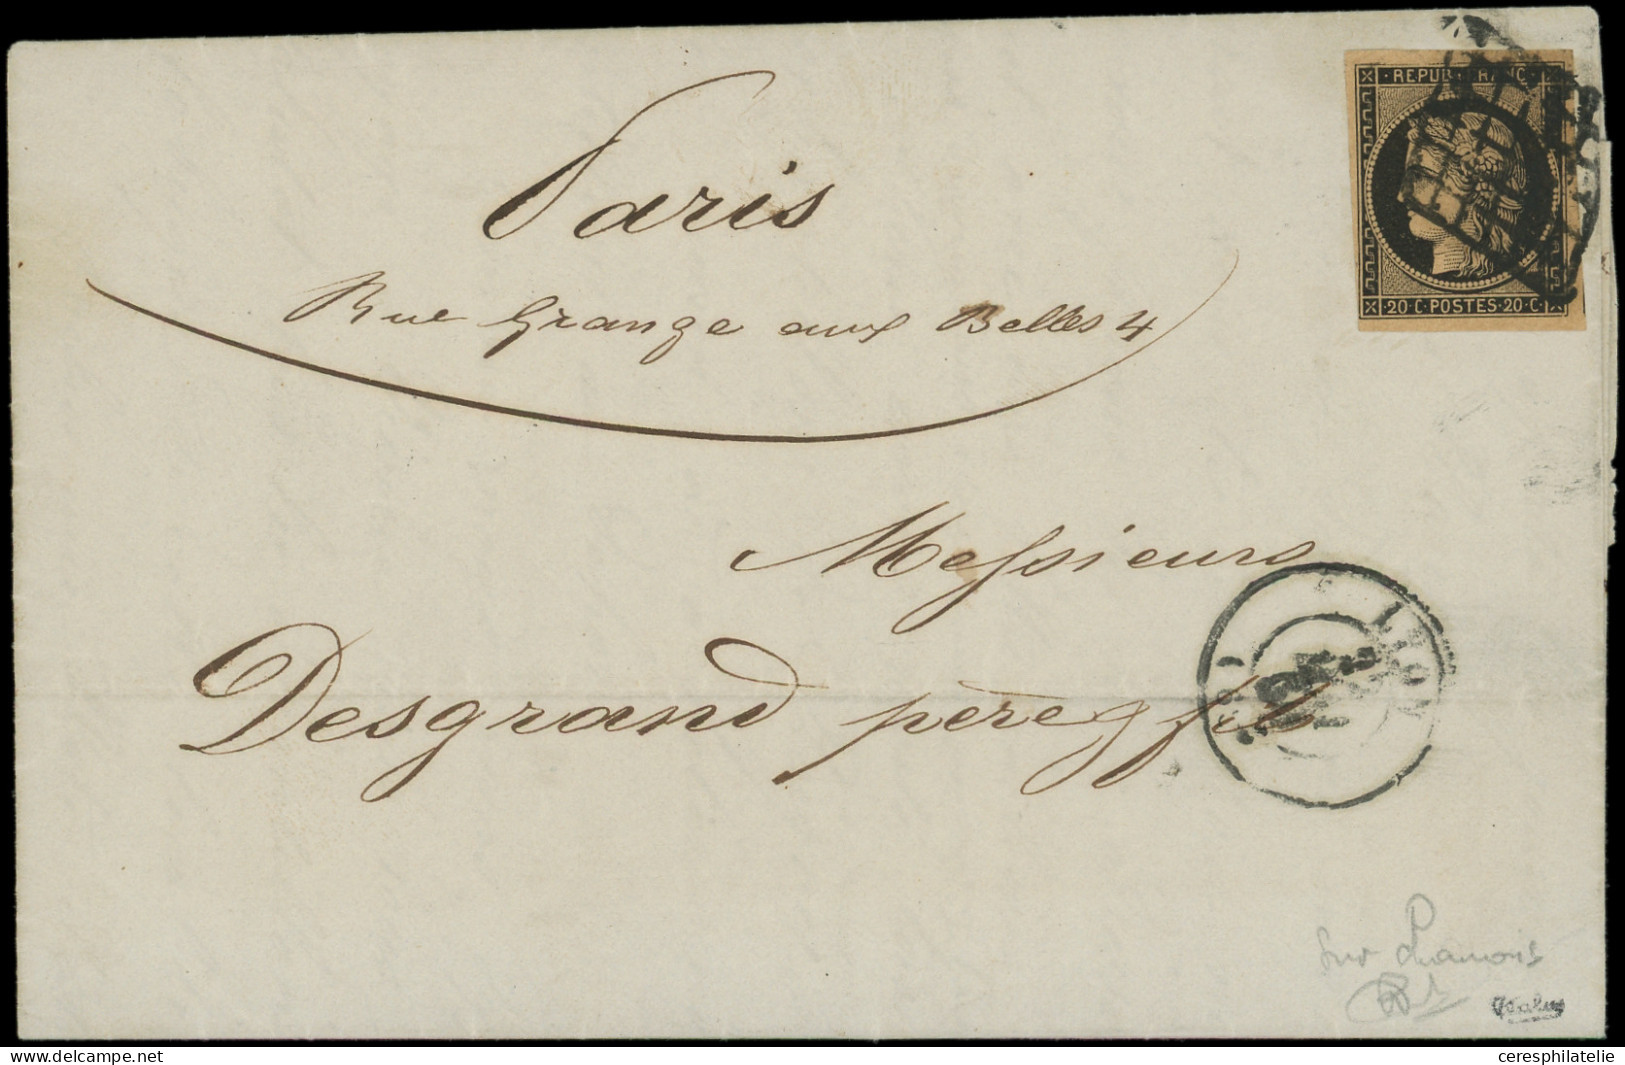 REPUB. FRANC.
20·C·POSTES·20·C·
Paris
Rue Grange aux Belles 4
Messieurs
Desgrand père & fils
LYON
sur chamois
www.delcampe.net
ceresphilatelie